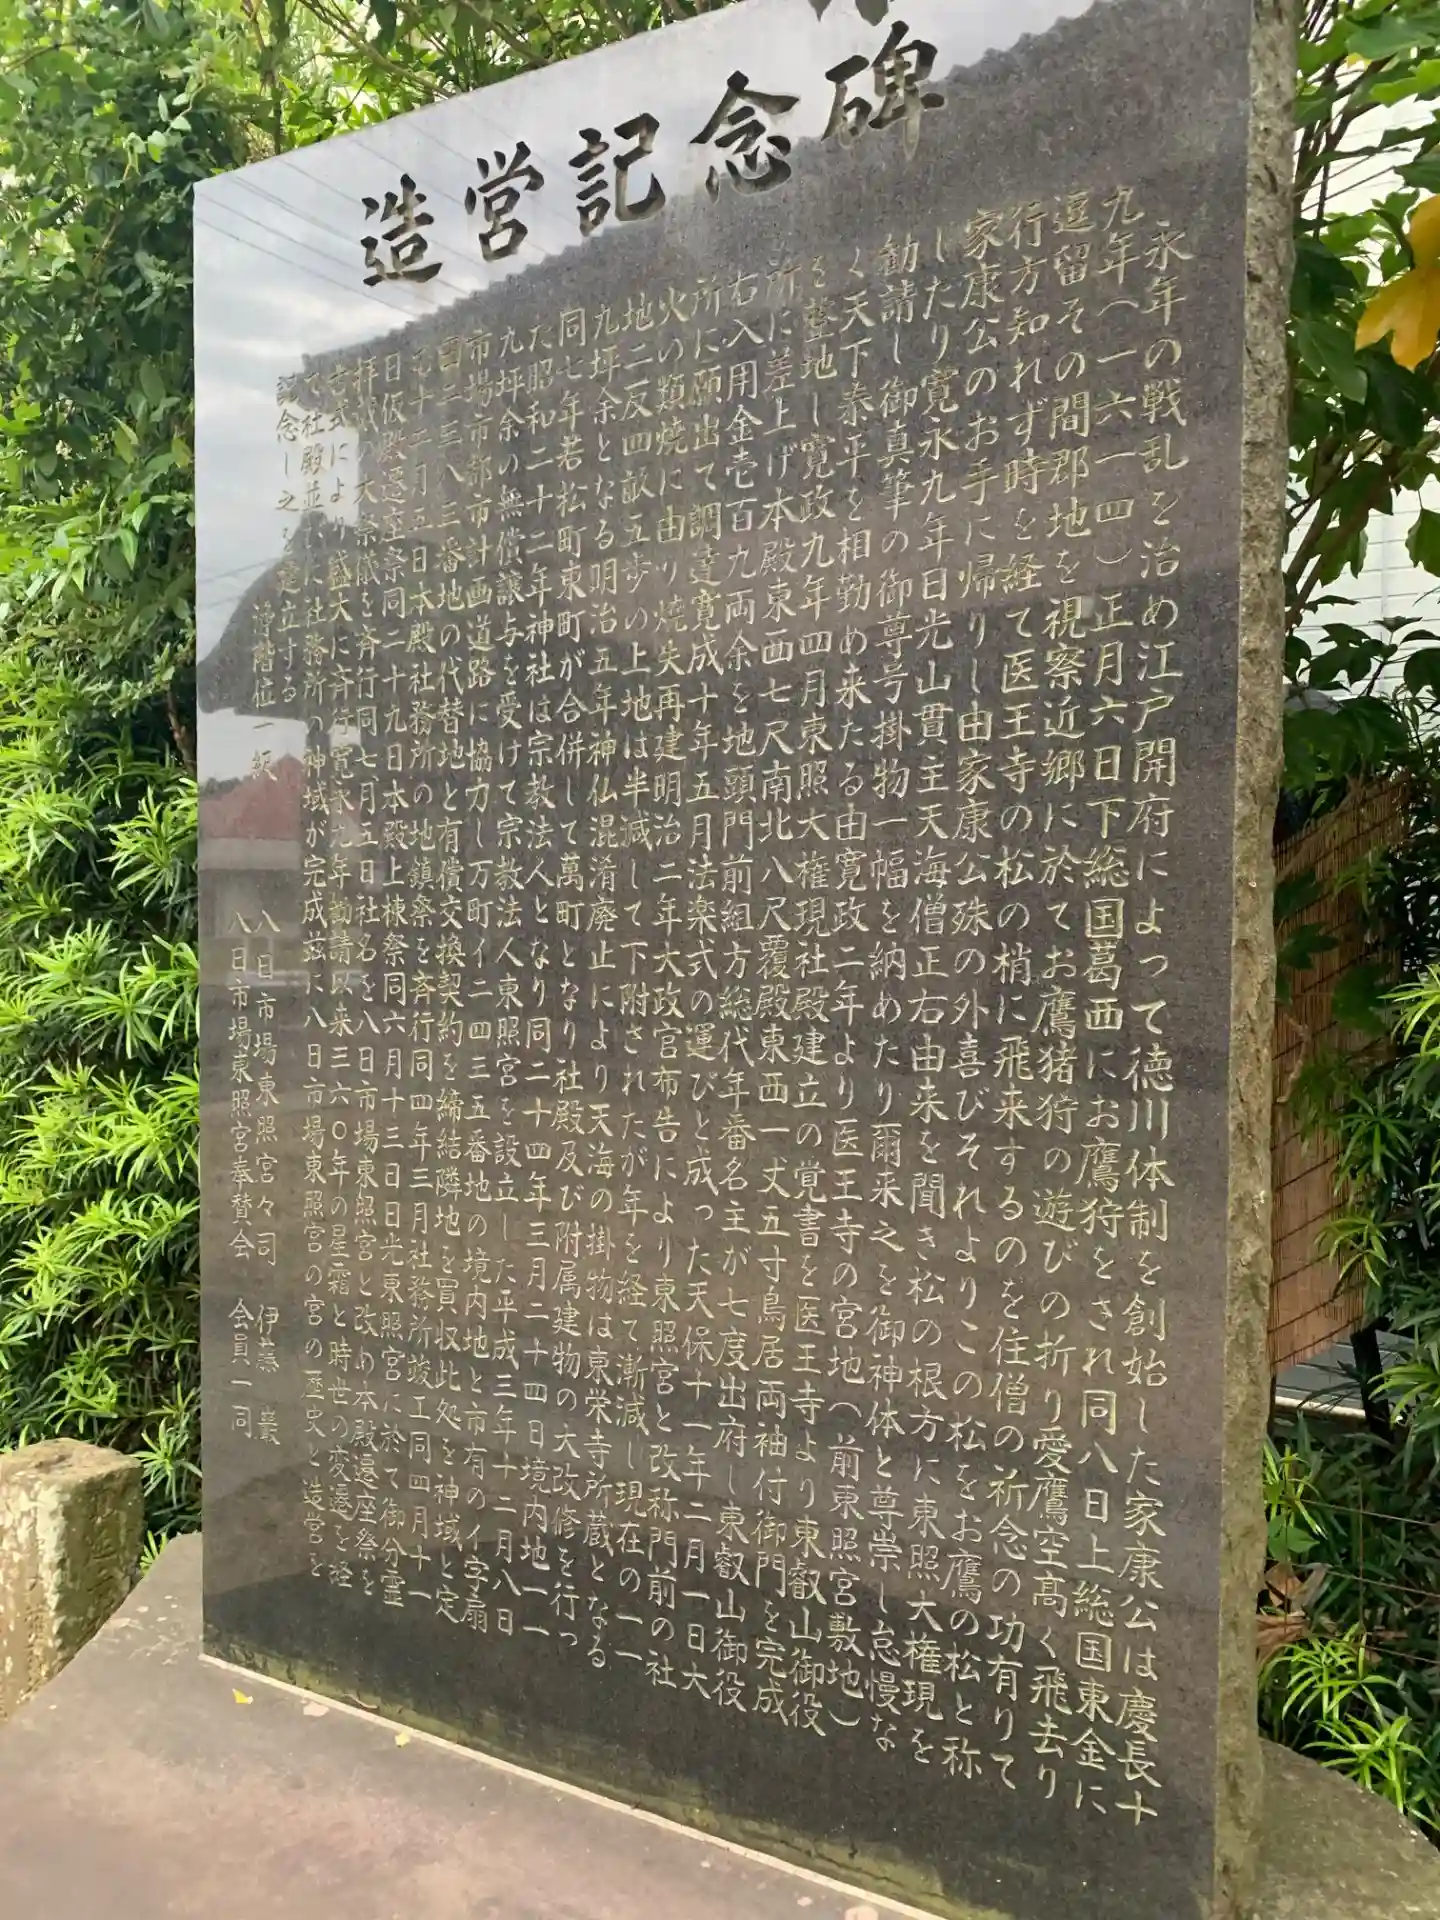 造営記念碑
永年の戦乱を治め江戸開府によって徳川体制を創始した家康公は慶長十
九年(一六一四)正月六日下総国葛西にお鷹狩をされ同八日上総国東金に
逗留その間郡地を視察近郷に於てお鷹猪狩の遊びの折り愛鷹空高く飛去り
行方知れず時を経て医王寺の松の梢に飛来するのを住僧の祈念の功有りて
家康公のお手に帰りし由家康公殊の外喜びそれよりこの松をお鷹の松と称
したり寛永九年日光山貫主天海僧正右由来を聞き松の根方に東照大権現を
勧請し御真筆の御尊号掛物一幅を納めたり爾来之を御神体と尊崇し怠慢な
く天下泰平を相勤め来たる由寛政二年より医王寺の宮地(前東照宮敷地)
を整地し寛政九年四月東照大権現社殿建立の覚書を医王寺より東叡山御役
所に差上げ本殿東西七尺南北八尺覆殿東西一丈五寸鳥居両袖付御門を完成
右入用金壱百九両余を地頭門前組方総代年番名主が七度出府し東叡山御役
所に願出て調達寛成十年五月法楽式の運びと成った天保十一年二月一日大
火の類焼に由り焼失再建明治二年大政官布告により東照宮と改称門前の社
地二反四畝五歩の上地は半減して下附されたが年を経て漸減し現在の一一
九坪余となる明治五年神仏混淆廃止により天海の掛物は東栄寺所蔵となる
同七年若松町東町が合併して萬町となり社殿及び附属建物の大改修を行っ
た昭和二十二年神社は宗教法人となり同二十四年三月二十四日境内地一一
九坪余の無償譲与を受けて宗教法人東照宮を設立した平成三年十二月八日
市場市都市計画道路に協力し万町イ二四三五番地の境内地と市有のイ字扇
田二三八三番地の代替地と有償交換契約を締結隣地を買収此処を神域と定
め十二月五日本殿社務所の地鎮祭を斉行同四年三月社務所竣工同四月十一
日仮殿遷座祭同二十九日本殿上棟祭同六月十三日日光東照宮に於て御分霊
拝戴の大祭儀を斉行同七月五日社名を八日市場東照宮と改め本殿遷座祭を
古式により盛大に斉行寛永九年勧請以来三六〇年の星霜と時世の変遷を経
て社殿並に社務所の神域が完成茲に八日市場東照宮の宮の歴史と造営を
記念し之を建立する
浄階位一級 八日市場東照宮々司 伊藤 巖
八日市場東照宮奉賛会 会員一同